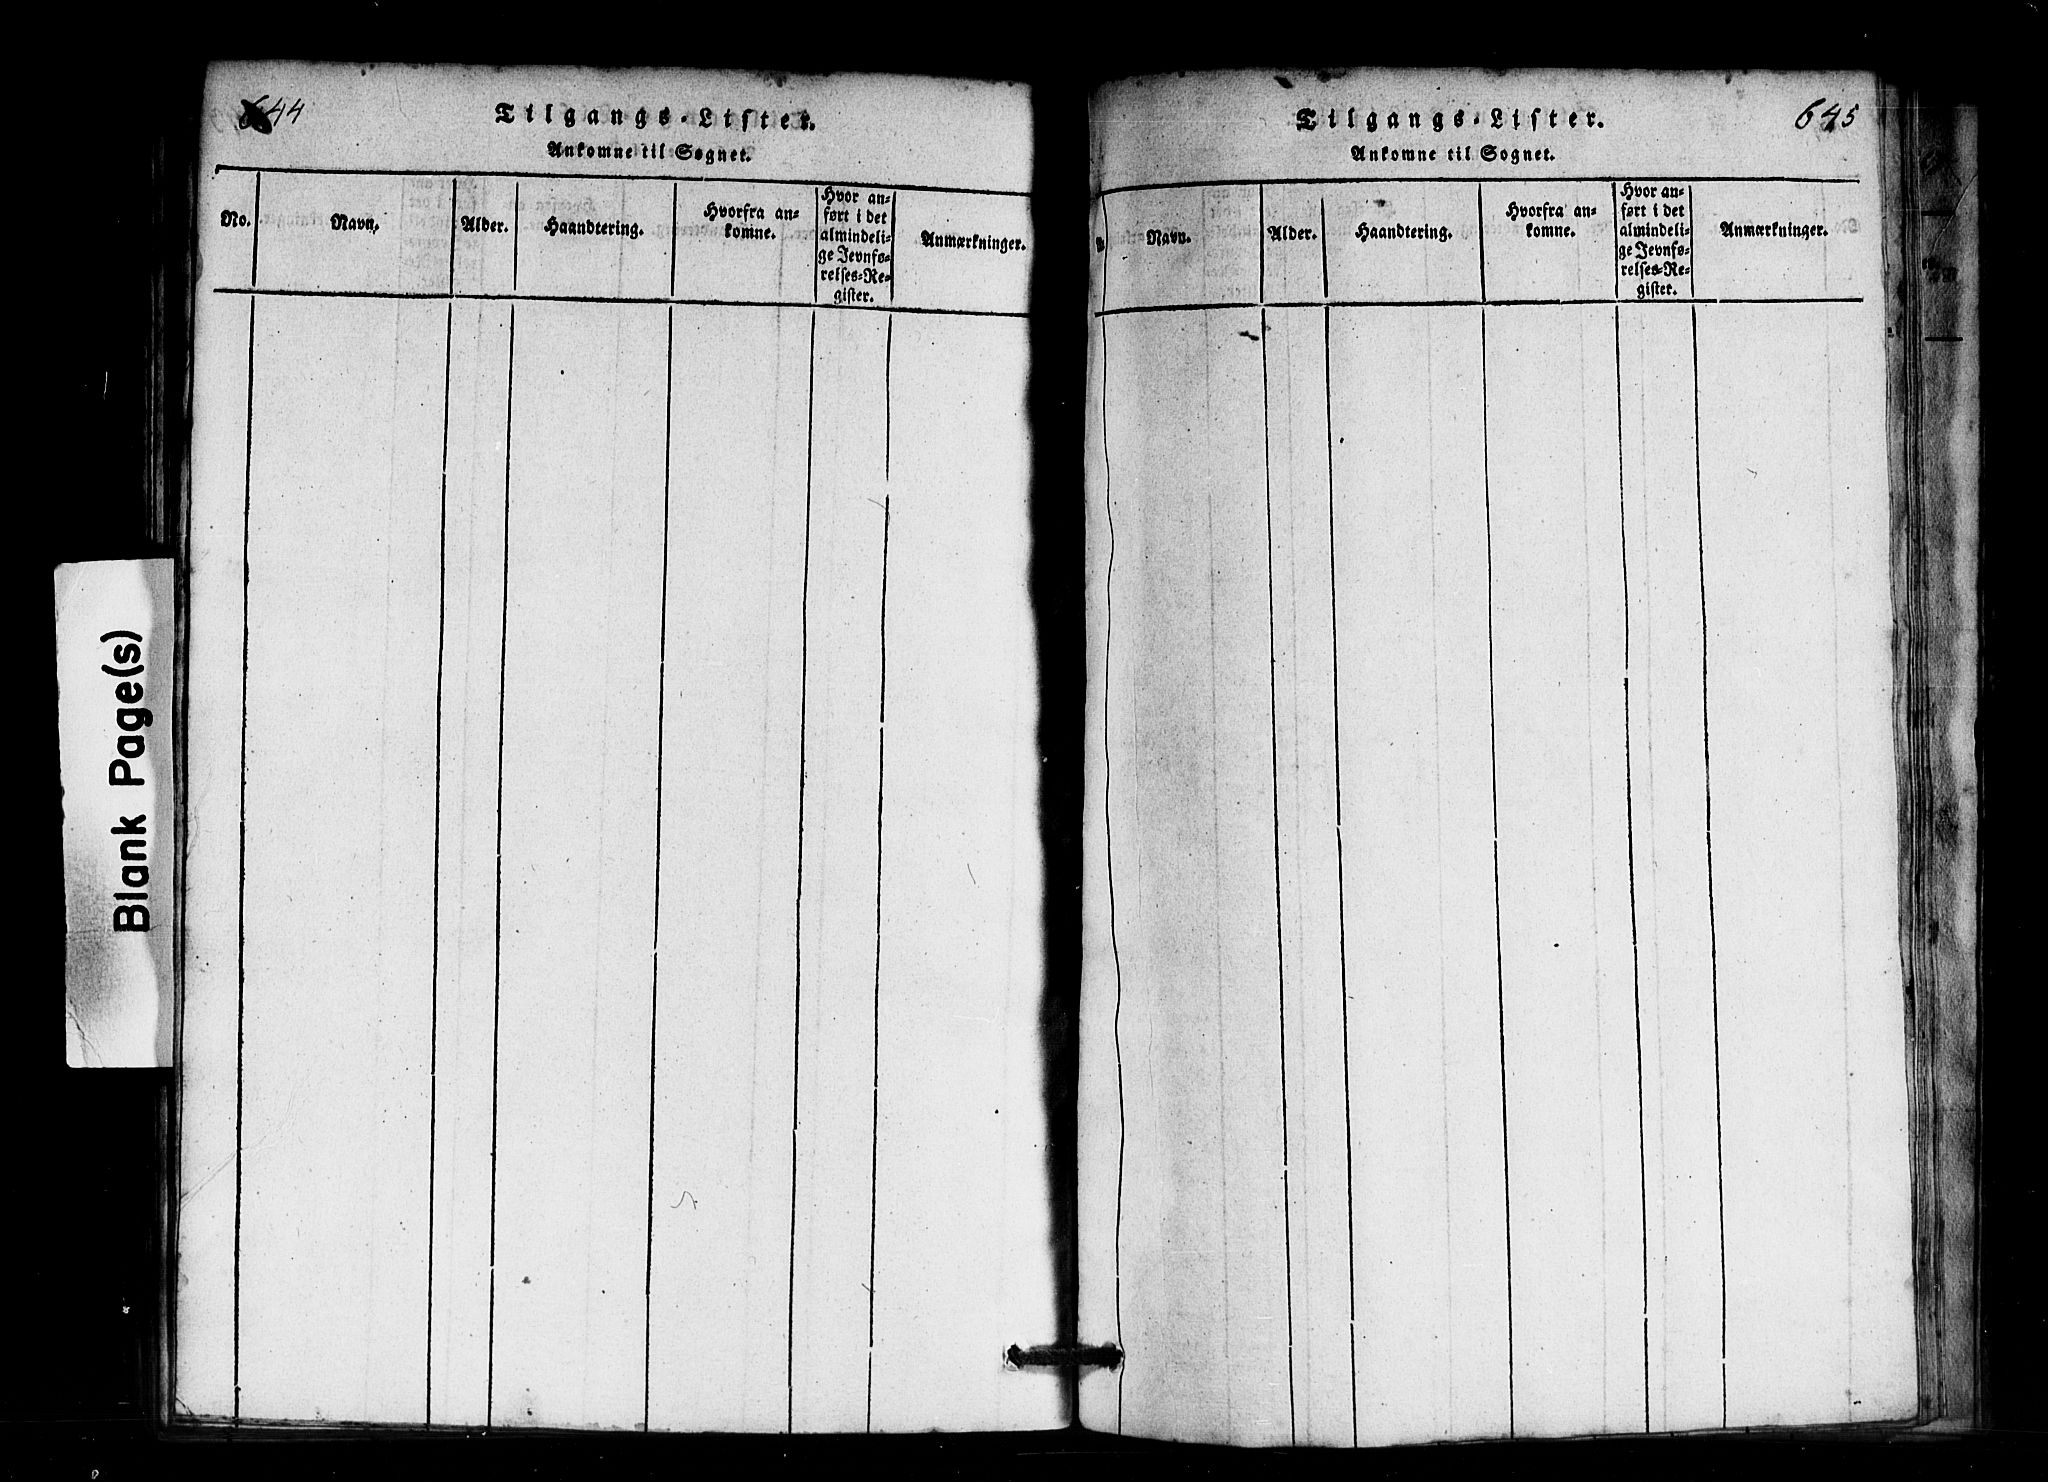 644
Tilgangs-Lister.
Ankomne til Sognet.
No.
Navn.
Alder.
Haandtering.
Hvorfra an=
komne.
Hvor an=
ført i det
almindeli=
ge Jevnfø=
relses=Re=
gister.
Anmærkninger.
645
Tilgangs-Lister.
Ankomne til Sognet.
Navn.
Alder.
Haandtering.
Hvorfra an=
komne.
Hvor an=
ført i det
almindeli=
ge Jevnfø=
relses=Re=
gister.
Anmærkninger.
Blank Page(s)